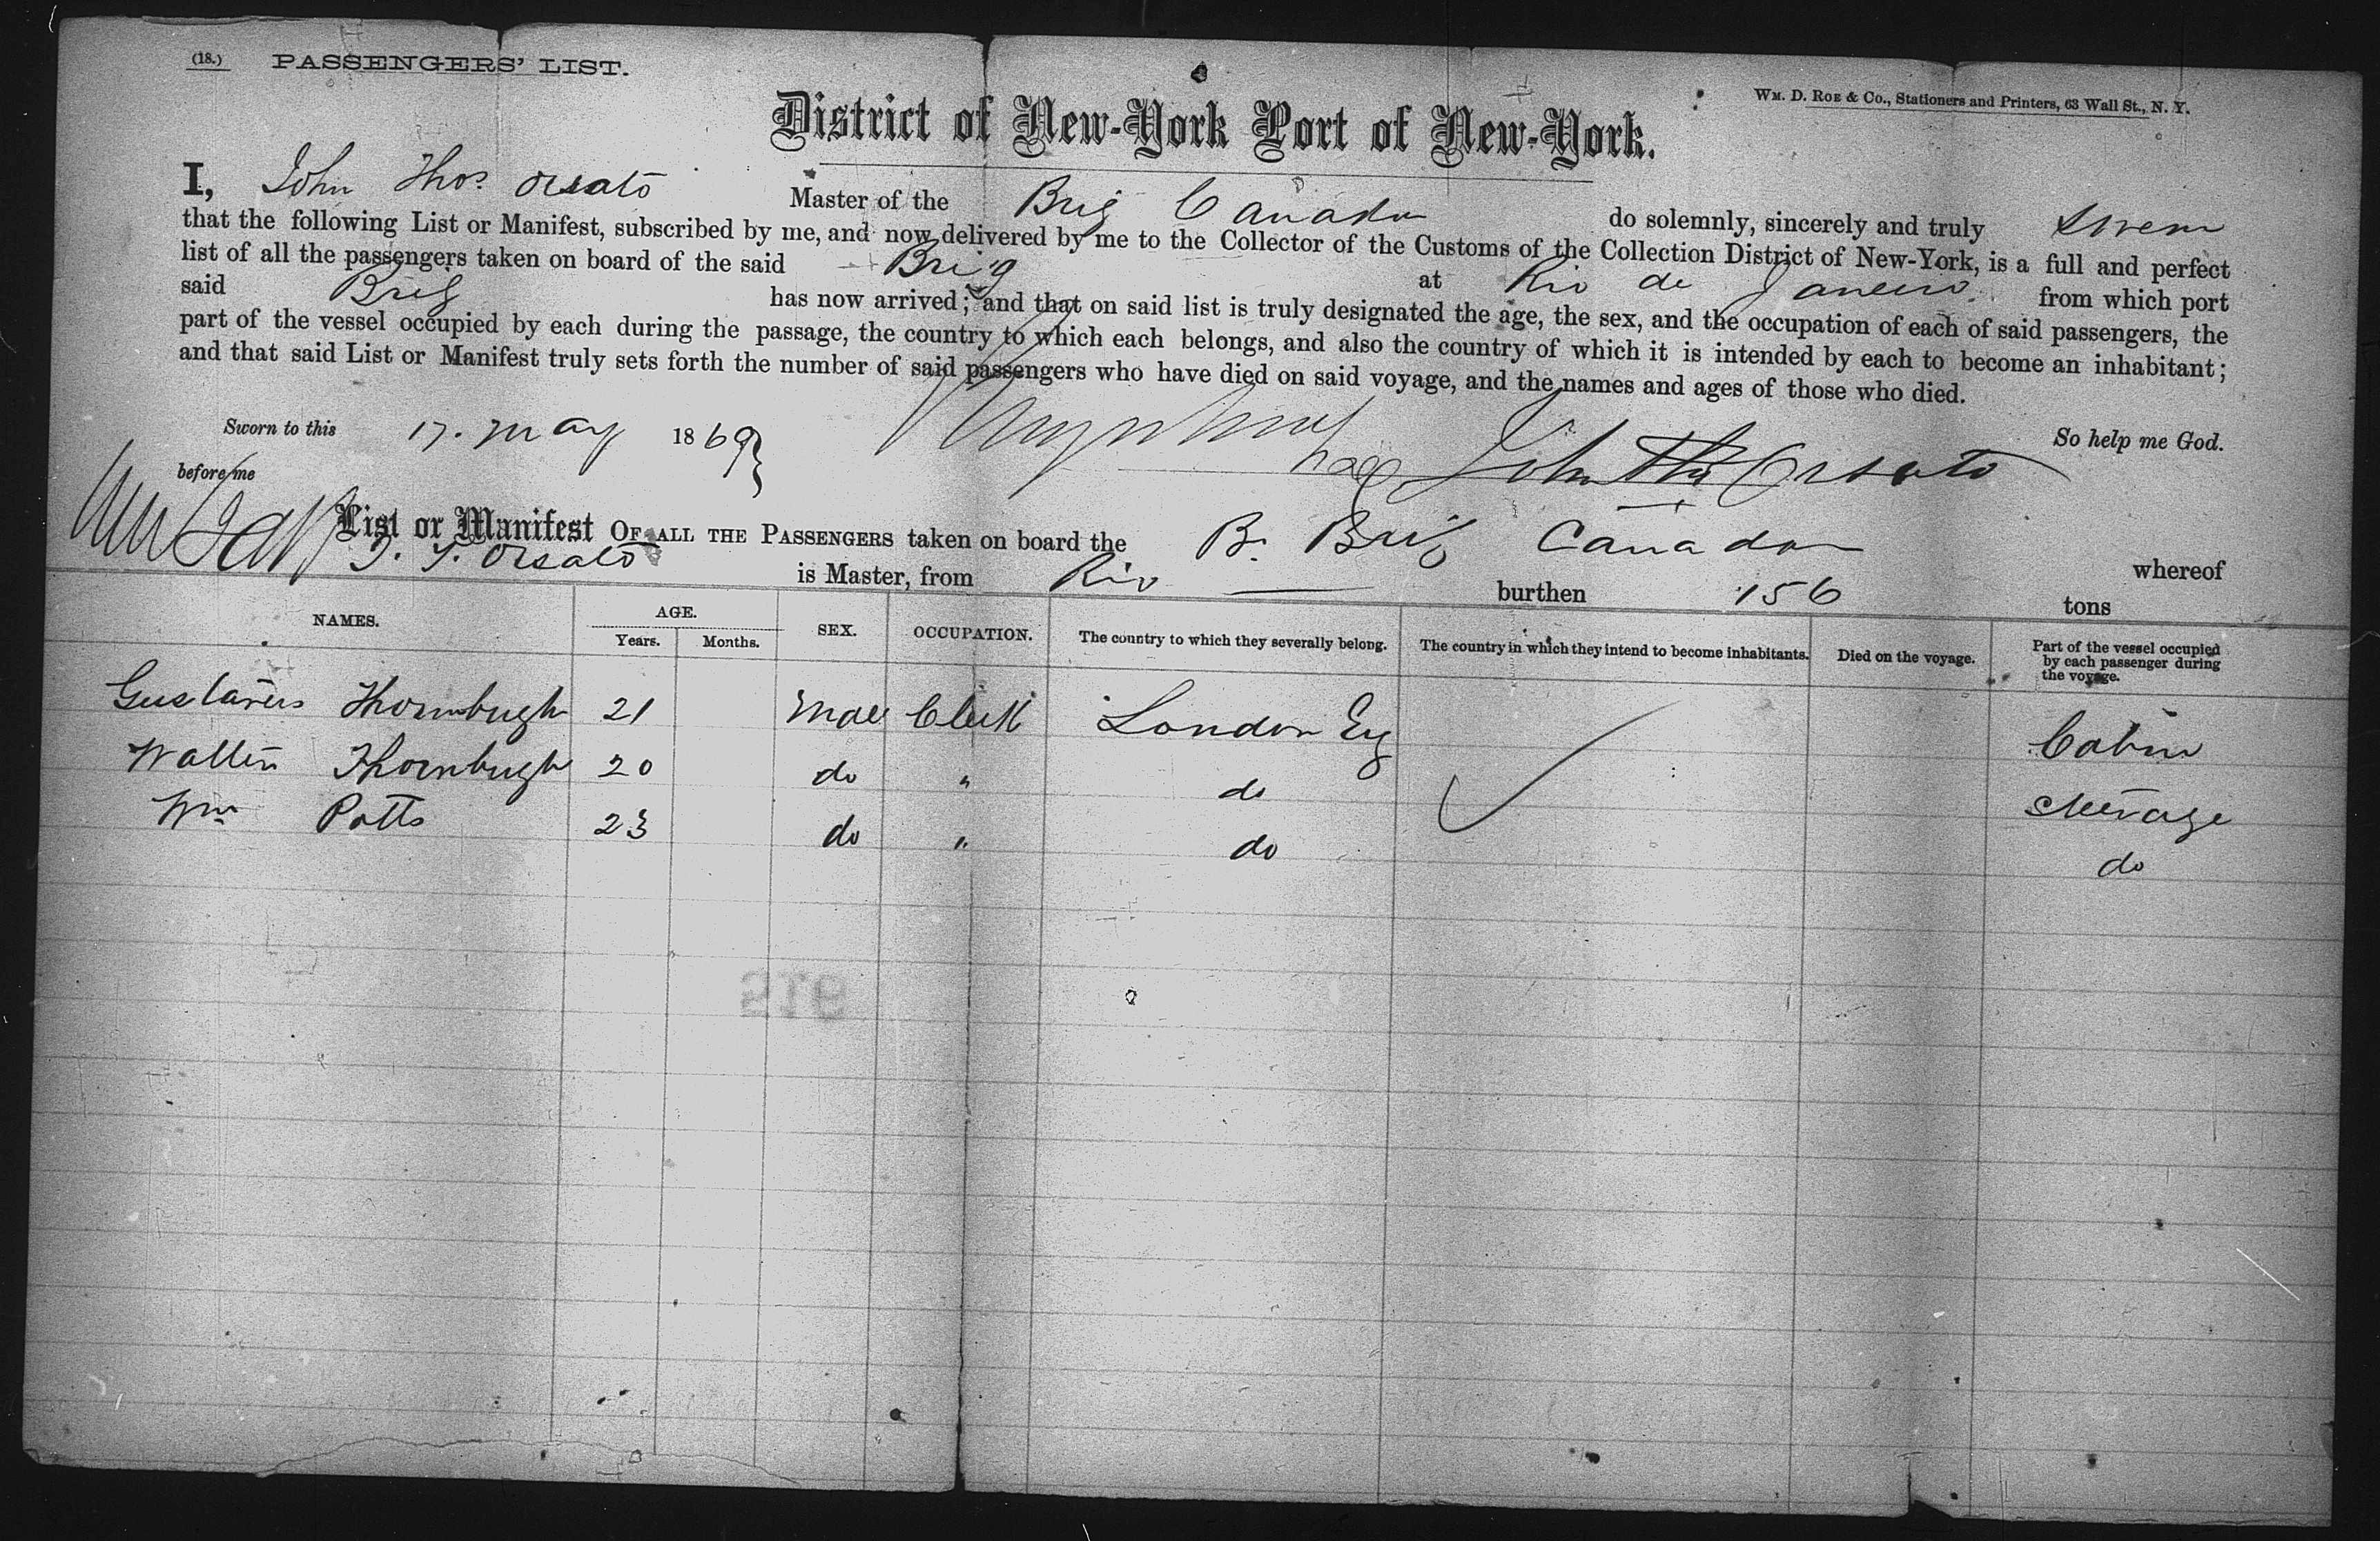 (18.) PASSENGERS' LIST.
WM. D. ROE & CO., Stationers and Printers, 63 Wall St., N. Y.
District of New-York Port of New-York.
I, John Thos. Orsato Master of the Brig Canada do solemnly, sincerely and truly swear
that the following List or Manifest, subscribed by me, and now delivered by me to the Collector of the Customs of the Collection District of New-York, is a full and perfect
list of all the passengers taken on board of the said Brig at Rio de Janeiro. from which port
said Brig has now arrived; and that on said list is truly designated the age, the sex, and the occupation of each of said passengers, the
part of the vessel occupied by each during the passage, the country to which each belongs, and also the country of which it is intended by each to become an inhabitant;
and that said List or Manifest truly sets forth the number of said passengers who have died on said voyage, and the names and ages of those who died.
Sworn to this 17. May 1869 So help me God.
before me John Thos Orsato
List or Manifest OF ALL THE PASSENGERS taken on board the B. Brig Canada whereof
J. T. Orsato is Master, from Rio burthen 156 tons
NAMES. AGE. Years. Months. SEX. OCCUPATION. The country to which they severally belong. The country in which they intend to become inhabitants. Died on the voyage. Part of the vessel occupied by each passenger during the voyage.
Gustavus Thornbugh 21 Male Clerk London Eg Cabin
Walter Thornbugh 20 do " do Steerage
Wm Potts 23 do " do do